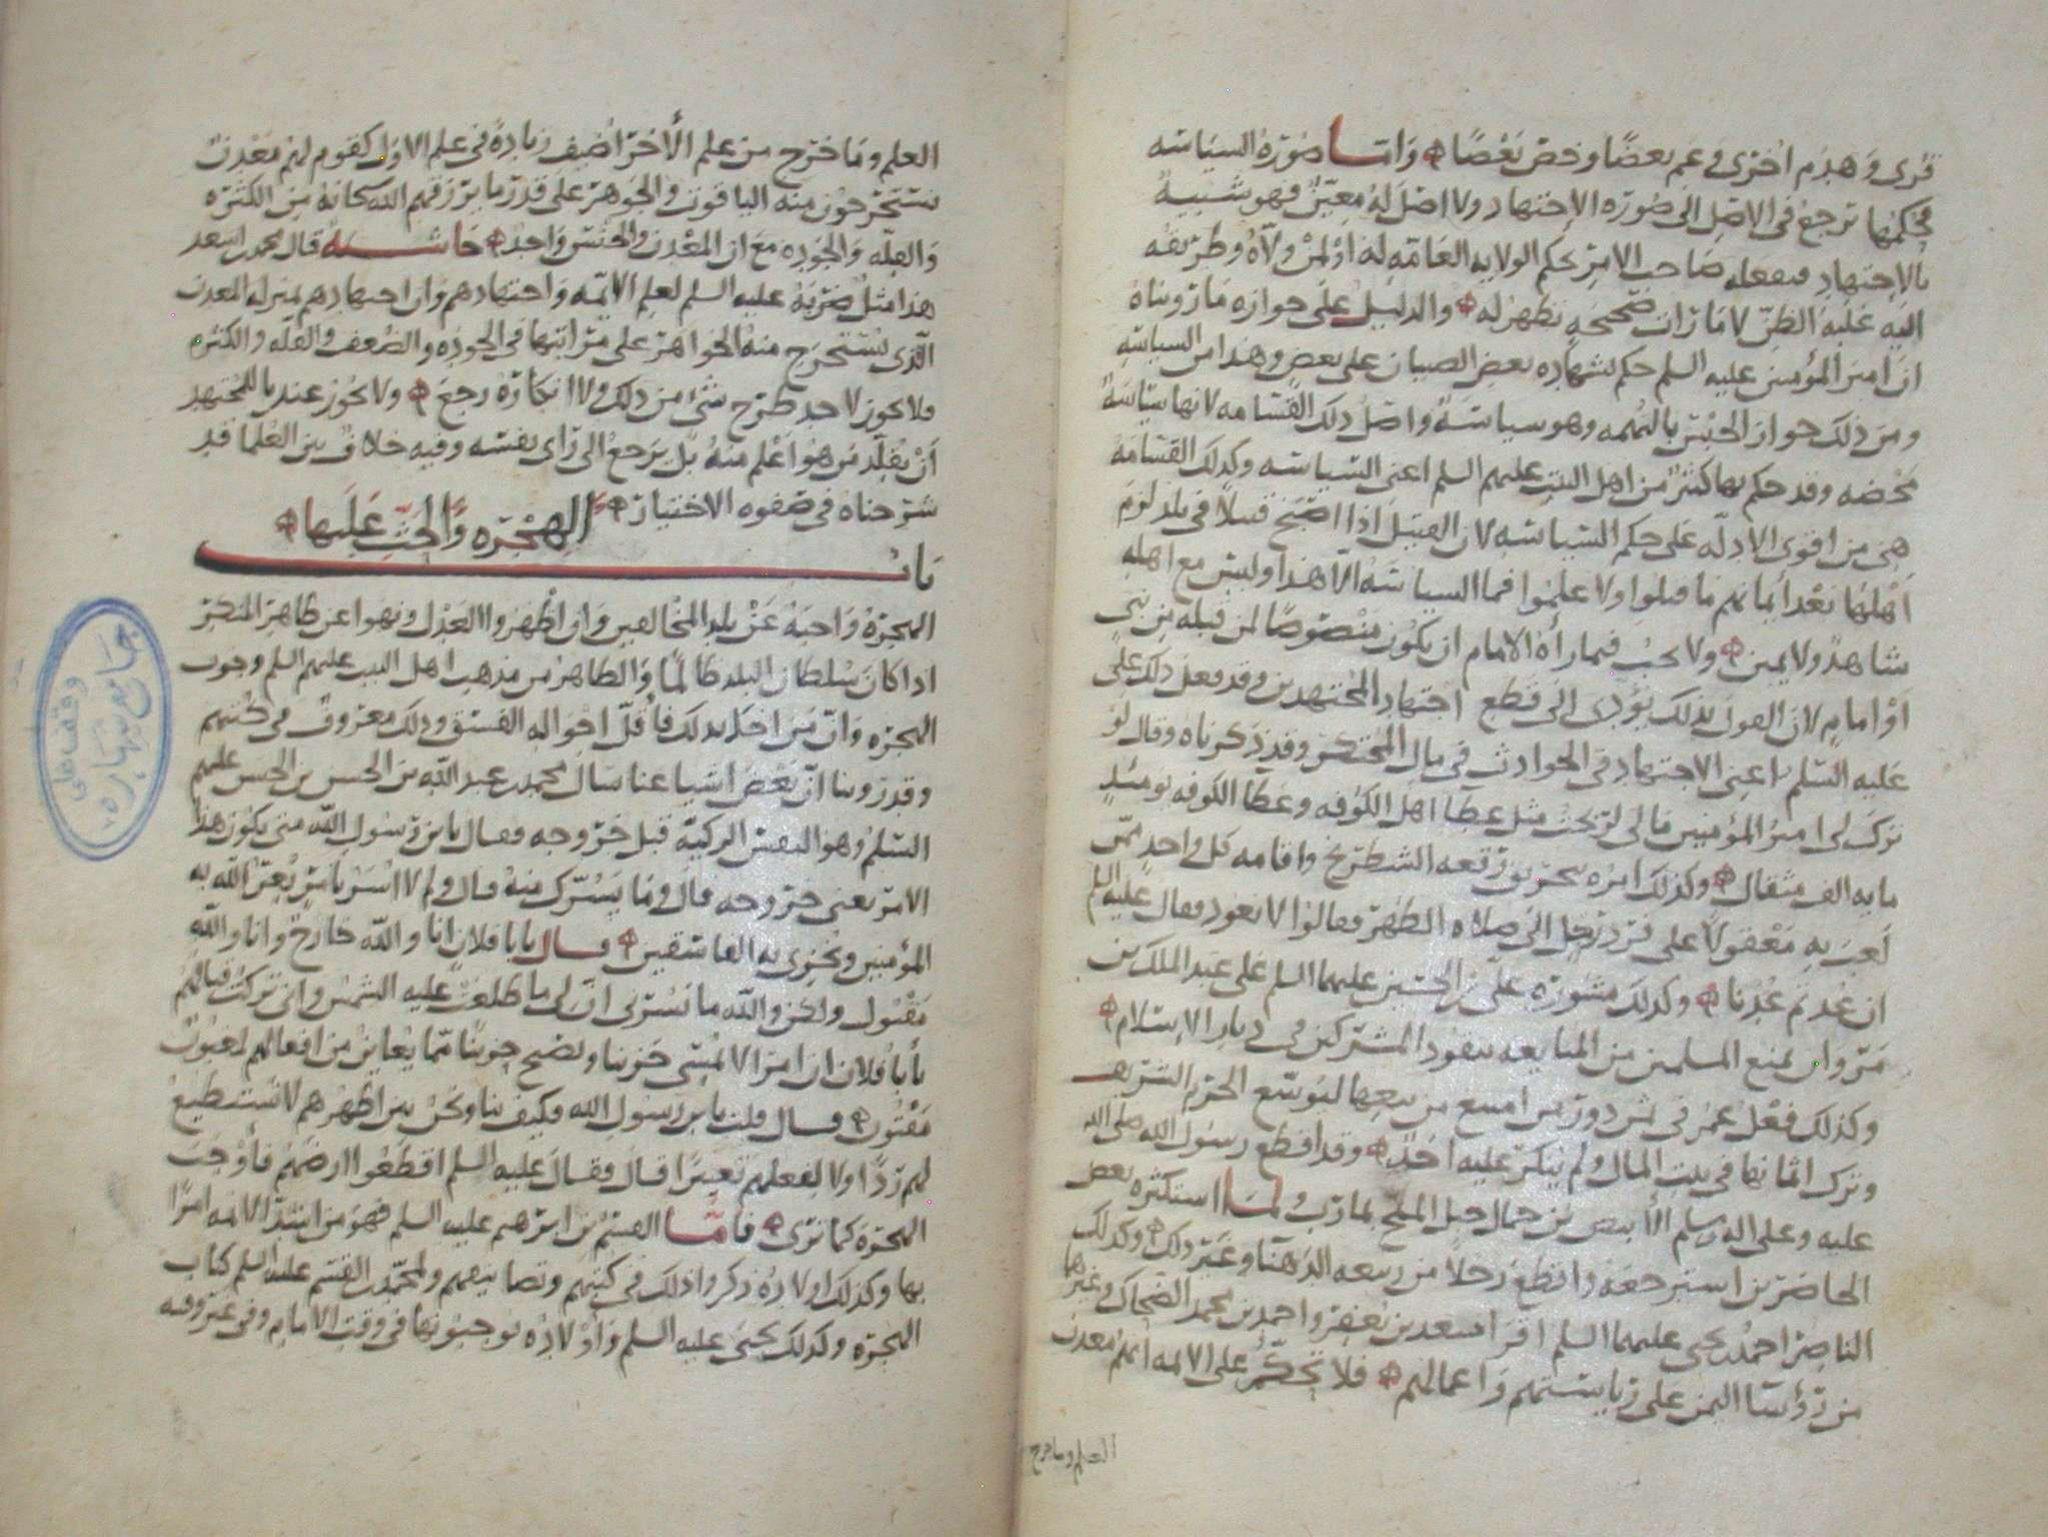 قرى وهدم اخرى وعم بعضا وخص بعضا وامـا صورة السياسه
فحكمها ترجع في الاصل الى صورة الاجتهاد ولا اصل له معين فهو شبيه
بالاجتهاد فيفعله صاحب الامر بحكم الولايه العامه له او لمن ولاه وطريقه
اليه غلبة الظن لامارات صحيحه تظهر له والدليل على جوازه ما رويناه
ان امير المؤمنين عليه السلم حكم بشهاده بعض الصبيان على بعض وهذا من السياسه
ومن ذلك جواز الحبس بالتهمه وهو سياسة واصل ذلك القسامه لانها سياسة
محضه وقد حكم بها كثير من اهل البيت عليهم السلم اعني السياسه وكذلك القسامه
هي من اقوى الادله على حكم السياسه لان القتيل اذا اصبح قتيلا في بلد لزم
اهلها بعد ايمانهم ما قتلوا ولا علموا فما السياسه الا هذا وليس مع اهله
شاهد ولا يمين ولا يجب فيما رأه الامام ان يكون منصوصا لمن قبله من نبي
او امام لان القول بذلك يؤدي الى قطع اجتهاد المجتهدين وقد فعل ذلك علي
عليه السلم اعني الاجتهاد في الحوادث في مال المحتكر وقد ذكرناه وقال لو
ترك لي امير المؤمنين مالي لربحت مثل عطا اهل الكوفه وعطا الكوفه يومئذ
مايه الف مثقال وكذلك امره بحريق رقعه الشطرنج واقامه كل واحد ممن
لعب به معقولا على فرد رجل الى صلاه الظهر فقالوا لا نعود فقال عليه السلم
ان عدتم عدنا وكذلك مشورة علي بن الحسين عليهما السلم على عبد الملك بن
مروان بمنع المسلمين من المبايعه بنقود المشركين في ديار الاسلام
وكذلك فعل عمر في دور من امتنع من بيعها ليوسع الحرم الشريف
وترك اثمانها في بيت المال ولم ينكر عليه احد وقد اقطع رسول الله صلى الله
عليه وعلى اله وسلم الأبيض بن حمال جبل الملح بمارب ولمـا استكثره بعض
الحاضرين استرجعه واقطع رجلا من ربيعه الدهنا وغير ذلك وكذلك
الناصر احمد بن يحيى عليهما السلم اقر اسعد بن يعفر واحمد بن محمد الضحاك وغيرها
من رؤسا اليمن على رياستهم واعمالهم فلا تحكم على الائمه انهم معدن
العلم وما خرج
العلم وما خرج من علم الأخر اضيف زيادة في علم الاول كقوم لهم معدن
يستخرجون منه الياقوت والجوهر على قدر ما يرزقهم الله سبحانه من الكثره
والقله والجوده مع ان المعدن والجنس واحد حاشـيه قال محمد بن اسعد
هذا مثل ضربه عليه السلم لعلم الائمه واجتهادهم وان اجتهادهم بمنزله المعدن
الذي يستخرج منه الجواهر على مراتبها في الجوده والضعف والقله والكثره
فلا يجوز لاحد طرح شيء من ذلك ولا انكاره رجع ولا يجوز عندنا للمجتهد
أن يقلد من هو اعلم منه بل يرجع الى راي نفسه وفيه خلاف بين العلما قد
شرحناه في صفوه الاختيار
بـاب الهجره والحث عليها
الهجرة واجبة عن بلد المخالفين وان اظهروا العدل ونهوا عن ظاهر المنكر
اذا كان سلطان البلد ظالما والظاهر من مذهب اهل البيت عليهم السلم وجوب
الهجره وان من اخل بذلك فاقل احواله الفسق وذلك معروف في كتبهم
وقد روينا ان بعض اشياعنا سال محمد بن عبد الله بن الحسن بن الحسن عليهم
السلم وهو النفس الزكية قبل خروجه فقال يابن رسول الله متى يكون هذا
الامر يعني خروجه قال وما يسرك منه قال ولم لا اسر بامر يعز الله به
المؤمنين ويخزي به الفاسقين قـال يابا فلان انا والله خارج وانا والله
مقتول ولكن والله ما يسرني ان لي ما طلعت عليه الشمس واني تركت قتالهم
يأبا فلان ان امرا لا يمسي حزينا ويصبح حزينا مما يعاين من افعالهم لمغبون
مفتون قـال قلت يابن رسول الله فكيف بنا ونحن بين اظهرهم لا نستطيع
لهم ردا ولا لفعلهم تغييرا قال فقال عليه السلم اقطعوا ارضهم فأوجب
الهجرة كما ترى فامـا القسم بن ابرهيم عليه السلم فهو من اشد الائمه امرا
بها وكذلك اولاده ذكروا ذلك في كتبهم وتصانيفهم ولمحمد بن القسم عليه السلم كتاب
الهجرة وكذلك يحيى عليه السلم وأولاده يوجبونها في وقت الامام وفي غير وقته
وقف على